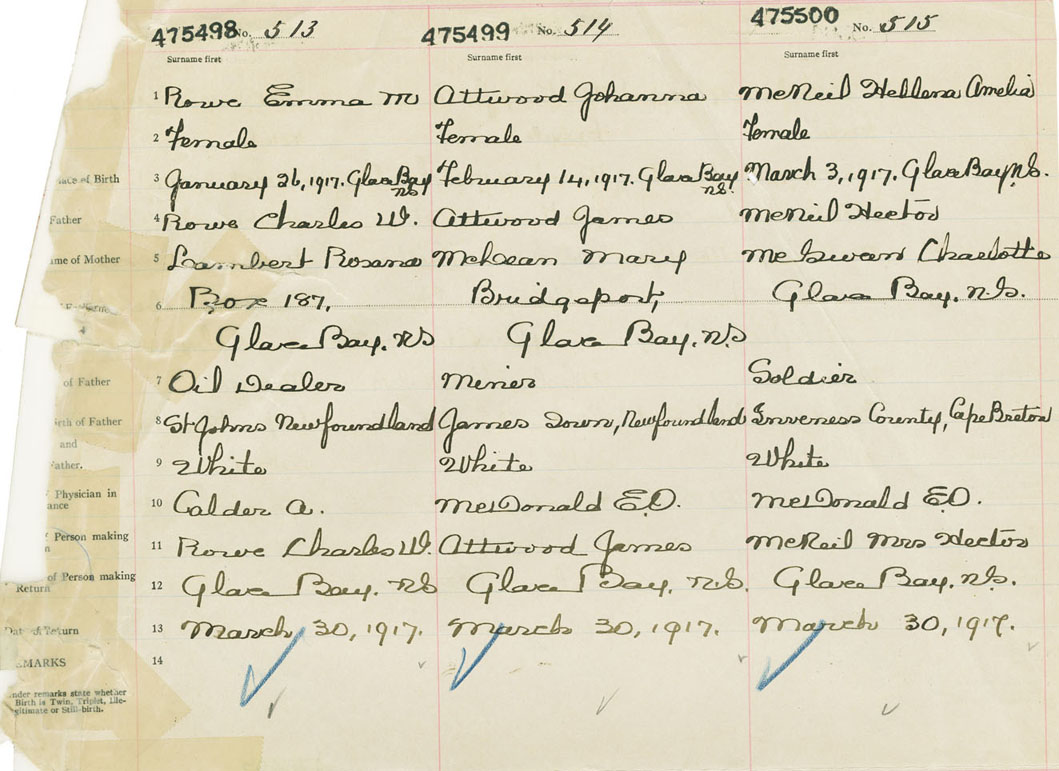 475498 No. 513 475499 No. 514 475500 No. 515
Surname first Surname first Surname first
1 Rowe Emma M Attwood Johanna McNeil Hellena Amelia
2 Female Female Female
ace of Birth 3 January 26, 1917. Glace Bay NS February 14, 1917. Glace Bay N.S. March 3, 1917. Glace Bay N.S.
Father 4 Rowe Charles W. Attwood James McNeil Hector
ame of Mother 5 Lambert Rosana McLean Mary McEwan Charlotte
6 Box 187, Bridgeport, Glace Bay, N.S.
Glace Bay, NS Glace Bay, N.S
of Father 7 Oil Dealer Miner Soldier
irth of Father 8 St Johns Newfoundland James Town, Newfoundland Inverness County, Cape Breton
and
Father. 9 White White White
Physician in 10 Calder A. McDonald E.O. McDonald E.O.
ance
Person making 11 Rowe Charles W. Attwood James McNeil Mrs Hector
of Person making 12 Glace Bay, NS Glace Bay, N.S. Glace Bay, N.S.
Return
Date of Return 13 March 30, 1917. March 30, 1917. March 30, 1917.
EMARKS 14
nder remarks state whether
Birth is Twin, Triplet, Ille-
gitimate or Still-birth.